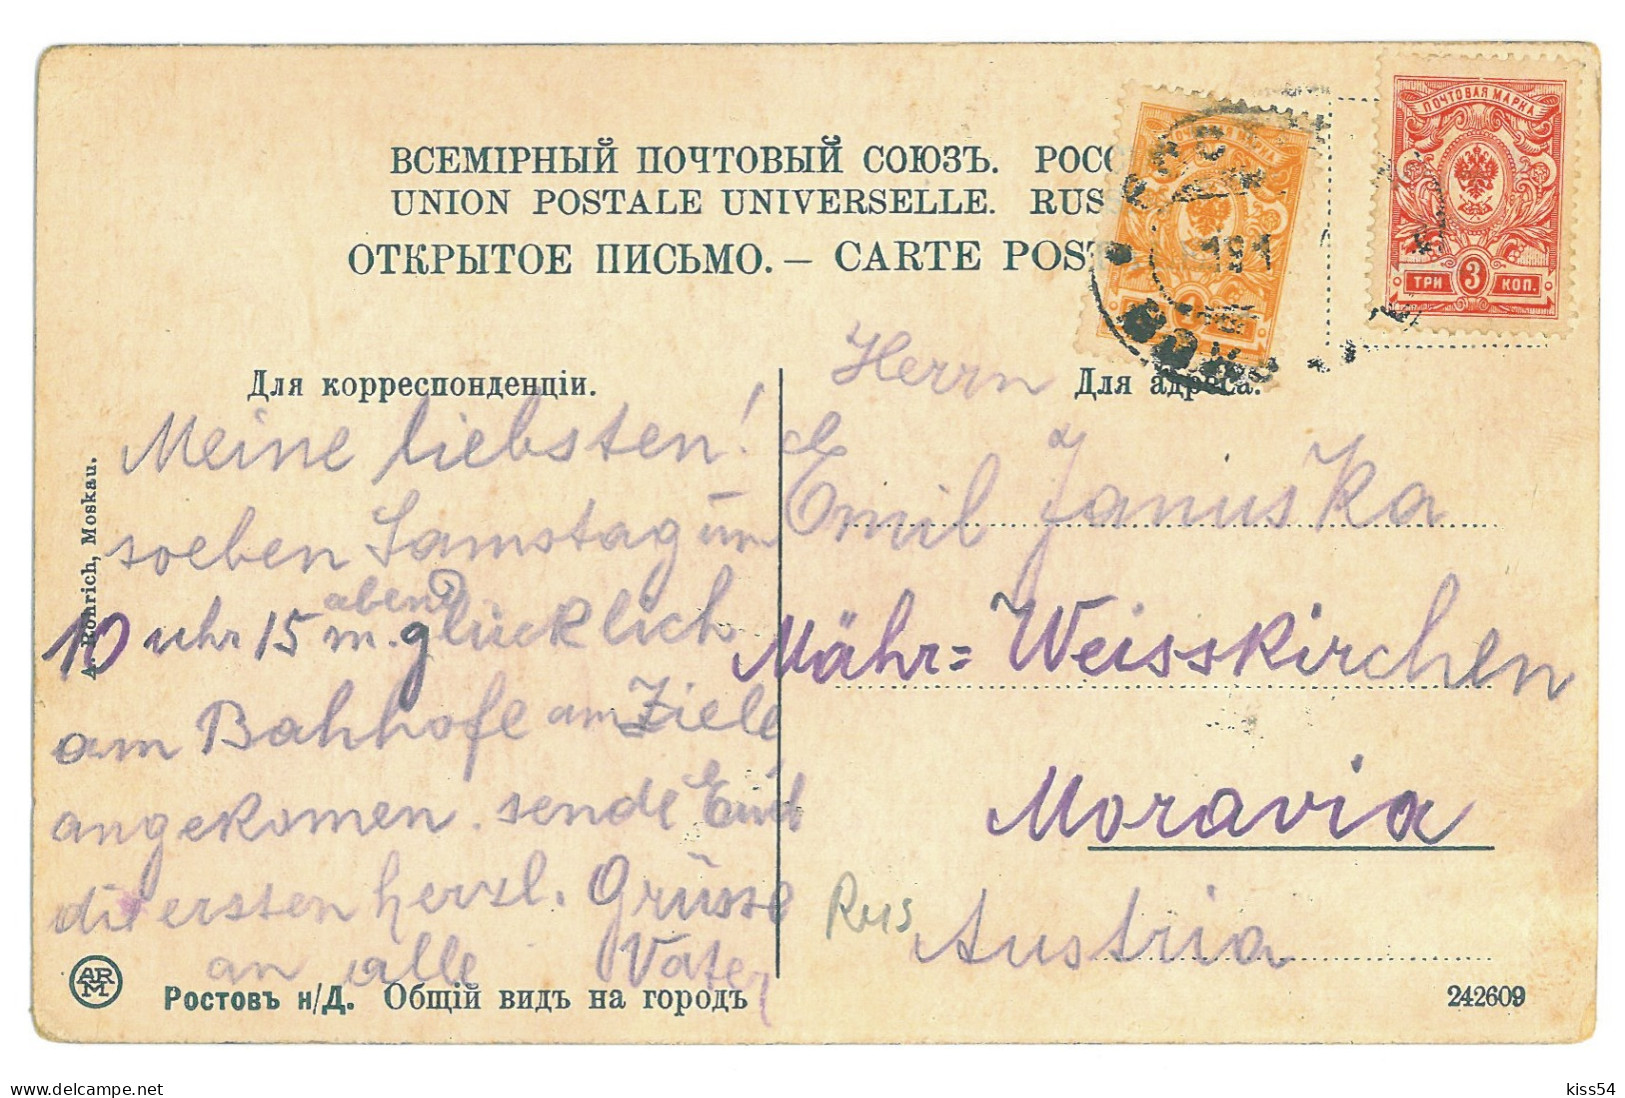 ВСЕМІРНЫЙ ПОЧТОВЫЙ СОЮЗЪ. РОСС
UNION POSTALE UNIVERSELLE. RUS
ОТКРЫТОЕ ПИСЬМО. — CARTE POST
ПОЧТОВАЯ МАРКА
ТРИ 3 КОП.
191
Для корреспонденціи.
Для адреса.
Meine liebsten!
soeben Samstag um
10 uhr 15 m. abend glücklich
am Bahhofe am Ziele
angekomen. sende Euch
die ersten herzl. Grüsse
an alle Vater
Herrn
Emil Januska
Mähr= Weisskirchen
Moravia
Austria
Rus
A. Rohrich, Moskau.
ARM
Ростовъ н/Д. Общій видъ на городъ
242609
www.delcampe.net
kiss54